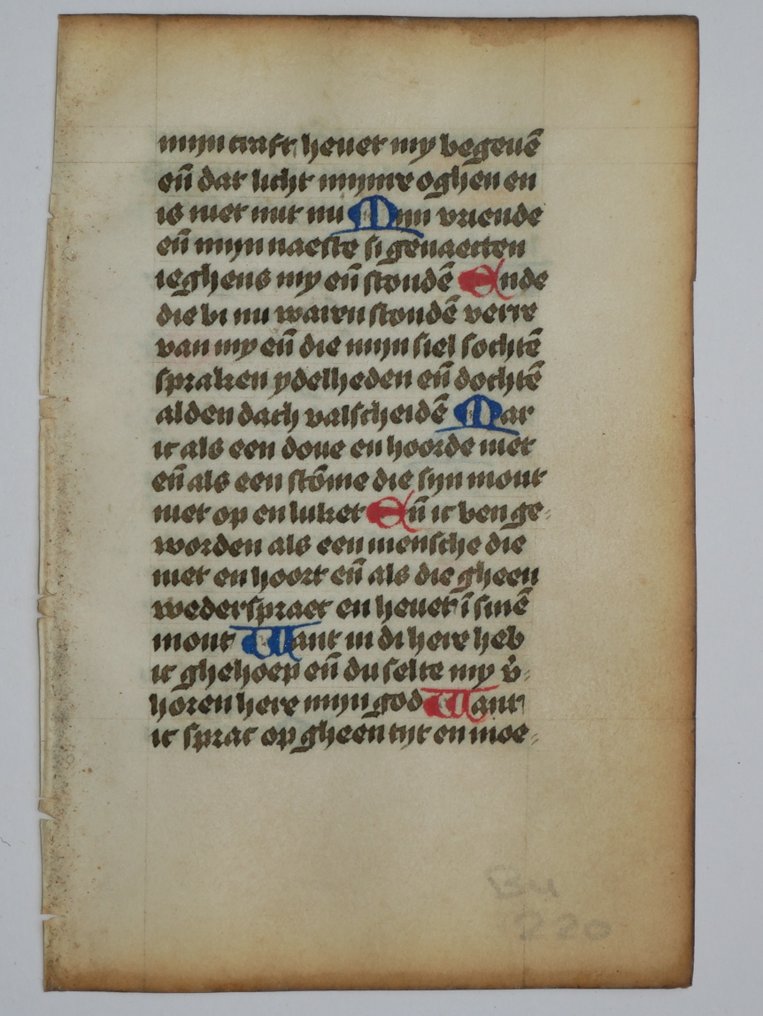 mijn craft heuet my begeuē
eñ dat licht mijnre oghen en
is niet mit mi Mijn vriende
eñ mijn naeste si genaecten
ieghens my eñ stondē Ende
die bi mi waren stondē verre
van my eñ die mijn siel sochtē
spraken ydelheden eñ dochtē
alden dach valscheidē Mar
ic als een doue en hoorde niet
eñ als een stōme die sijn mont
niet op en luket Eñ ic ben ge-
worden als een mensche die
niet en hoort eñ als die gheen
wederspraec en heuet ī sinē
mont Want in di here heb
ic ghehoep eñ du selte my v̓-
horen here mijn god Want
ic sprac op gheen tijt en moe-
Bu
220